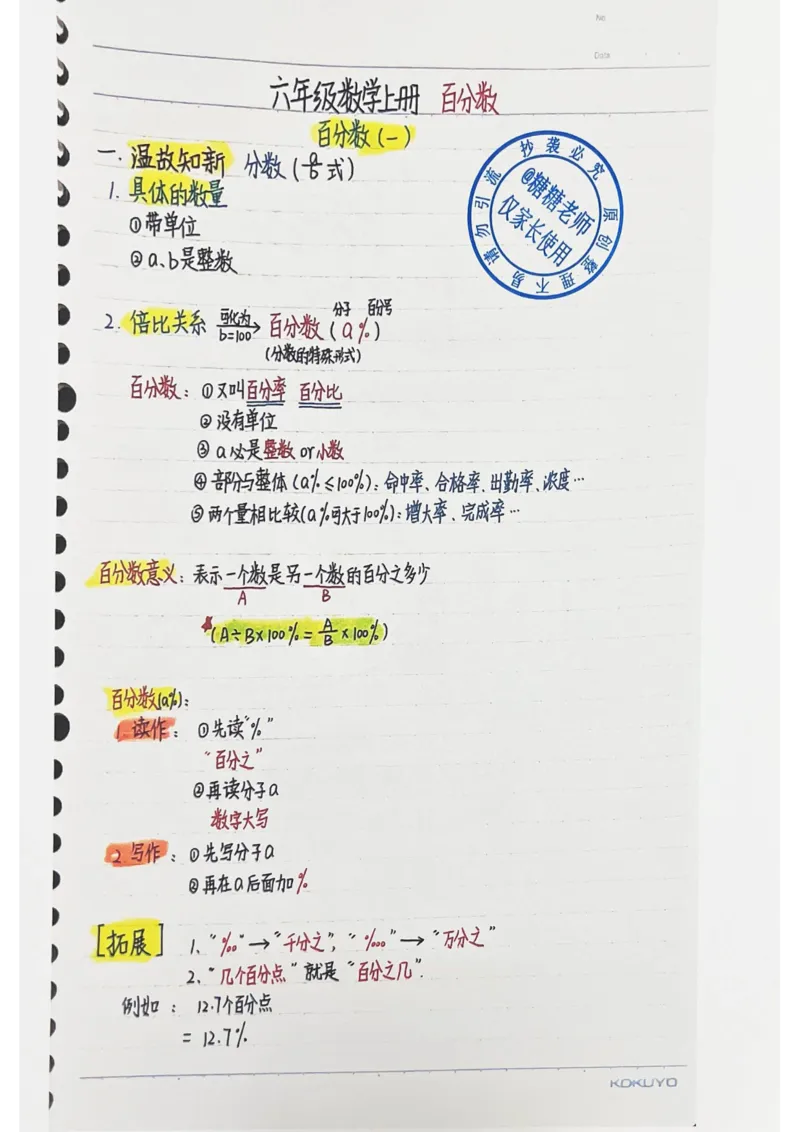 No
Date
六年级数学上册 百分数
百分数(一)
一.温故知新 分数(a/b式)
1.具体的数量
①带单位
②a、b是整数
抄袭必究 原创整理不易 请勿引流
@糖糖老师
仅家长使用
分子 百分号
2.倍比关系 可化为 b=100 → 百分数(a%)
(分数的特殊形式)
百分数:①又叫百分率 百分比
②没有单位
③a必是整数or小数
④部分与整体(a%≤100%):命中率、合格率、出勤率、浓度…
⑤两个量相比较(a%可大于100%):增大率、完成率…
百分数意义:表示一个数是另一个数的百分之多少
A B
★(A÷B×100%=A/B×100%)
百分数(a%):
1.读作:①先读“%”
“百分之”
②再读分子a
数字大写
2.写作:①先写分子a
②再在a后面加%
[拓展] 1、“‰”→“千分之”,“‱”→“万分之”
2、“几个百分点”就是“百分之几”.
例如:12.7个百分点
=12.7%
KOKUYO